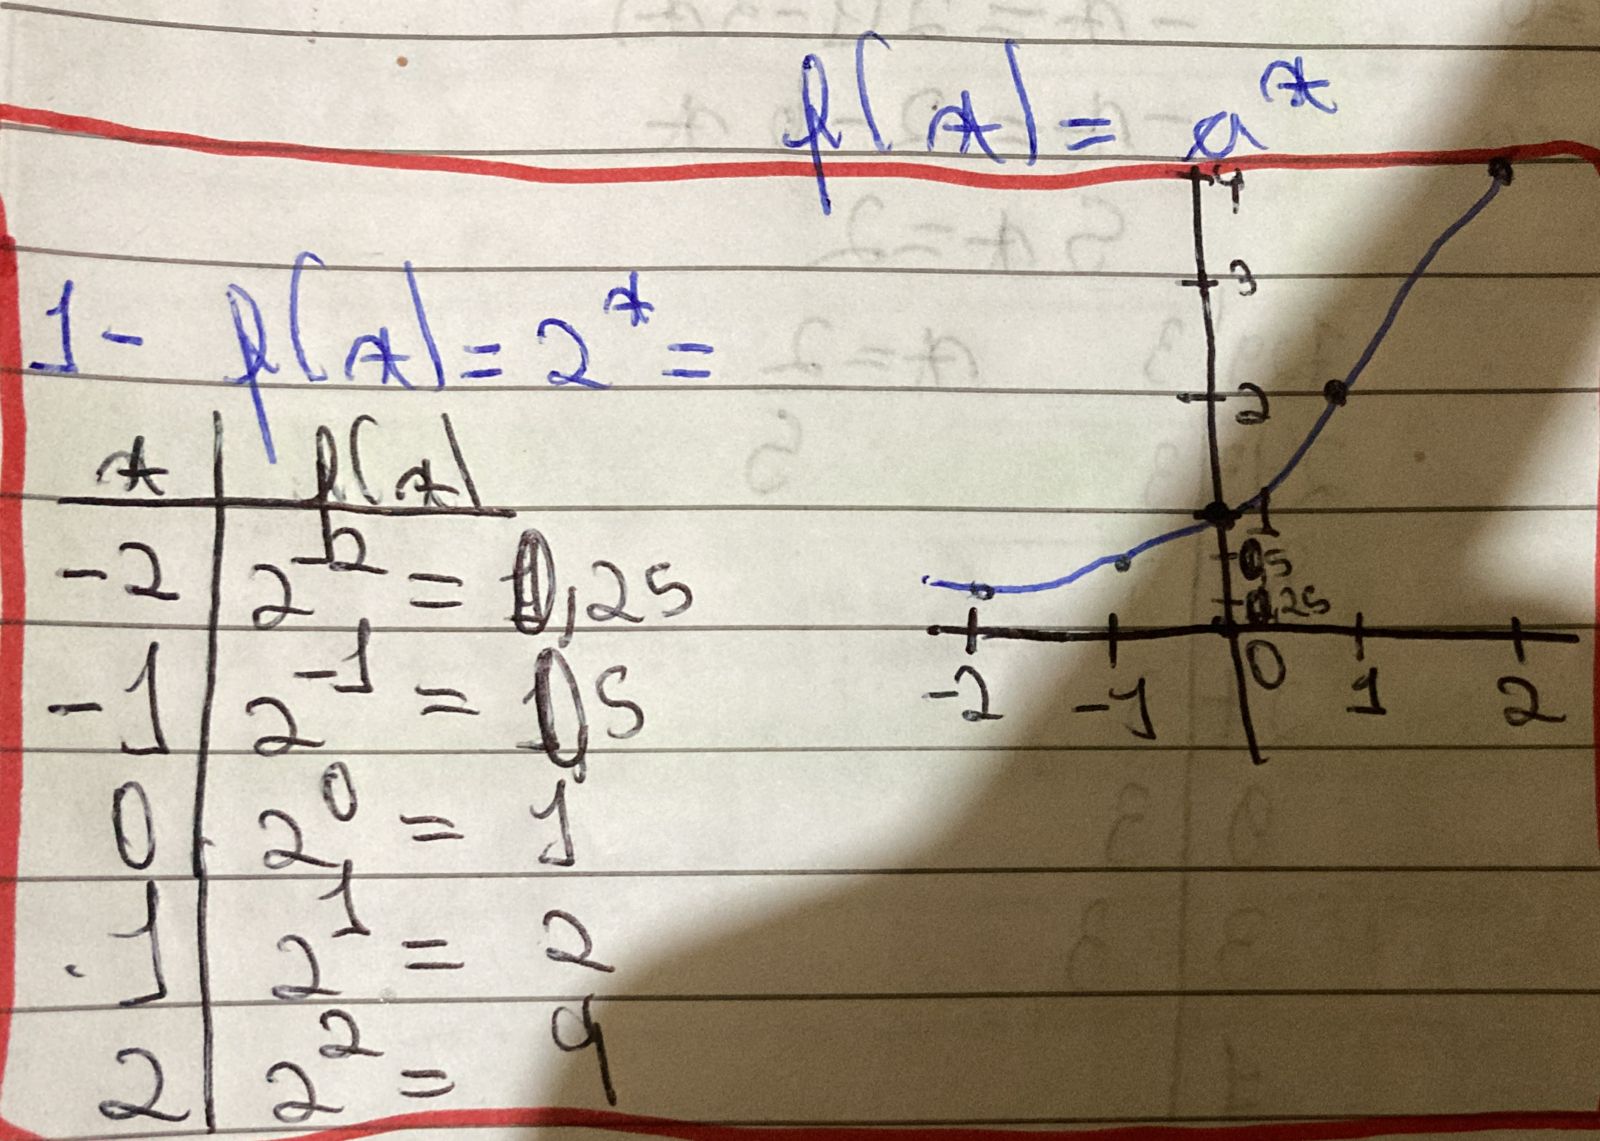 f(x) = a^x
1- f(x) = 2^x =
x | f(x)
-2 | 2^-2 = 0,25
-1 | 2^-1 = 0,5
0 | 2^0 = 1
1 | 2^1 = 2
2 | 2^2 = 4
4
3
2
1
0,5
0,25
-2 -1 0 1 2